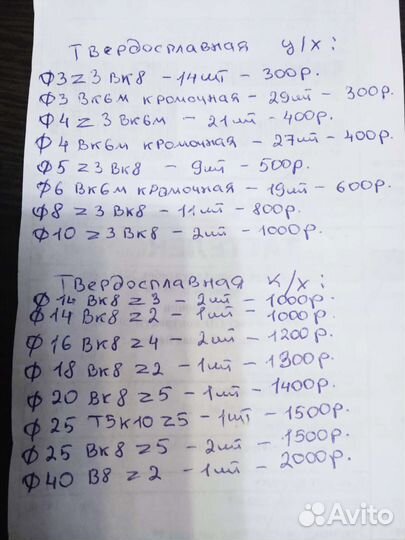 Твердосплавная ц/х:
ф3 z3 Вк8 – 14шт – 300р.
ф3 Вк6м кромочная – 29шт – 300р.
ф4 z3 Вк6м – 21шт – 400р.
ф4 Вк6м кромочная – 27шт – 400р.
ф5 z3 Вк8 – 9шт – 500р.
ф6 Вк6м кромочная – 19шт – 600р.
ф8 z3 Вк8 – 11шт – 800р.
ф10 z3 Вк8 – 2шт – 1000р.
Твердосплавная к/х:
ф14 Вк8 z3 – 2шт – 1000р.
ф14 Вк8 z2 – 1шт – 1000р.
ф16 Вк8 z4 – 2шт – 1200р.
ф18 Вк8 z2 – 1шт – 1300р.
ф20 Вк8 z5 – 1шт – 1400р.
ф25 Т5к10 z5 – 1шт – 1500р.
ф25 Вк8 z5 – 2шт – 1500р.
ф40 В8 z2 – 1шт – 2000р.
Avito